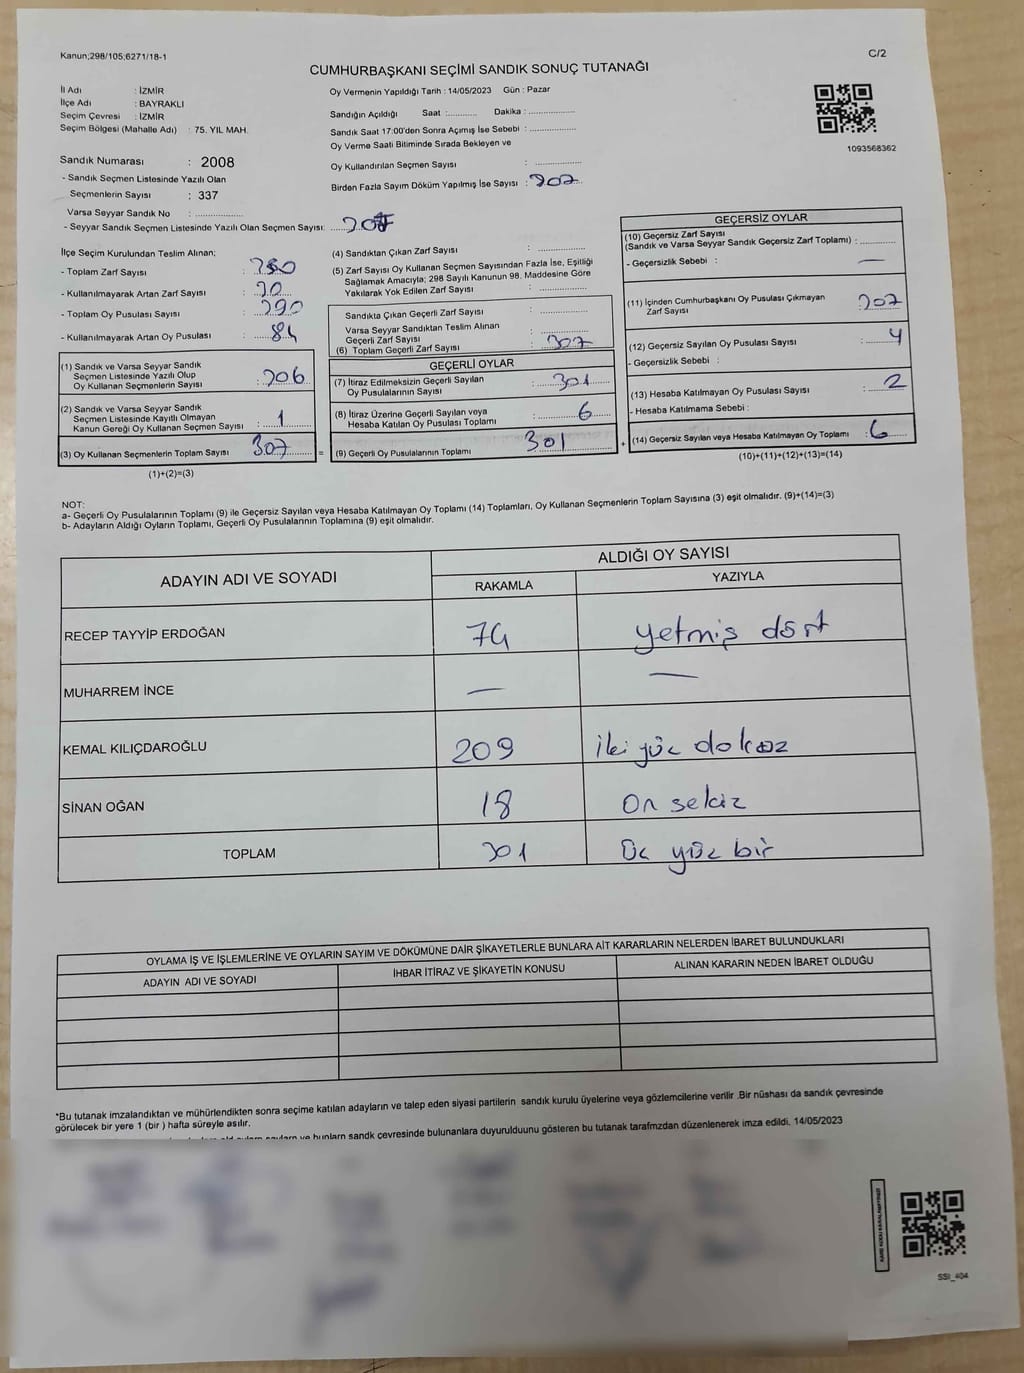 Kanun;298/105;6271/18-1
C/2
CUMHURBAŞKANI SEÇİMİ SANDIK SONUÇ TUTANAĞI
İl Adı : İZMİR
İlçe Adı : BAYRAKLI
Seçim Çevresi : İZMİR
Seçim Bölgesi (Mahalle Adı) : 75. YIL MAH.
Sandık Numarası : 2008
- Sandık Seçmen Listesinde Yazılı Olan
Seçmenlerin Sayısı : 337
Varsa Seyyar Sandık No : ....................
- Seyyar Sandık Seçmen Listesinde Yazılı Olan Seçmen Sayısı:
Oy Vermenin Yapıldığı Tarih : 14/05/2023 Gün : Pazar
Sandığın Açıldığı Saat :.......... Dakika : ..............
Sandık Saat 17:00'den Sonra Açımış İse Sebebi : ..............
Oy Verme Saati Bitiminde Sırada Bekleyen ve
Oy Kullandırılan Seçmen Sayısı : ..............
Birden Fazla Sayım Döküm Yapılmış İse Sayısı : 307
1093568362
İlçe Seçim Kurulundan Teslim Alınan;
- Toplam Zarf Sayısı :
- Kullanılmayarak Artan Zarf Sayısı :
- Toplam Oy Pusulası Sayısı : 390
- Kullanılmayarak Artan Oy Pusulası : 84
(1) Sandık ve Varsa Seyyar Sandık
Seçmen Listesinde Yazılı Olup
Oy Kullanan Seçmenlerin Sayısı : 306
(2) Sandık ve Varsa Seyyar Sandık
Seçmen Listesinde Kayıtlı Olmayan
Kanun Gereği Oy Kullanan Seçmen Sayısı : 1
(3) Oy Kullanan Seçmenlerin Toplam Sayısı 307 =
(1)+(2)=(3)
(4) Sandıktan Çıkan Zarf Sayısı : ..............
(5) Zarf Sayısı Oy Kullanan Seçmen Sayısından Fazla İse, Eşitliği
Sağlamak Amacıyla; 298 Sayılı Kanunun 98. Maddesine Göre
Yakılarak Yok Edilen Zarf Sayısı : ..............
Sandıkta Çıkan Geçerli Zarf Sayısı : ..............
Varsa Seyyar Sandıktan Teslim Alınan
Geçerli Zarf Sayısı : ..............
(6) Toplam Geçerli Zarf Sayısı : 307
GEÇERLİ OYLAR
(7) İtiraz Edilmeksizin Geçerli Sayılan
Oy Pusulalarının Sayısı : 301
(8) İtiraz Üzerine Geçerli Sayılan veya
Hesaba Katılan Oy Pusulası Toplamı : 6
(9) Geçerli Oy Pusulalarının Toplamı 301 +
GEÇERSİZ OYLAR
(10) Geçersiz Zarf Sayısı
(Sandık ve Varsa Seyyar Sandık Geçersiz Zarf Toplamı) : ..............
- Geçersizlik Sebebi : —
(11) İçinden Cumhurbaşkanı Oy Pusulası Çıkmayan
Zarf Sayısı 307
(12) Geçersiz Sayılan Oy Pusulası Sayısı : 4
- Geçersizlik Sebebi :
(13) Hesaba Katılmayan Oy Pusulası Sayısı : 2
- Hesaba Katılmama Sebebi :
(14) Geçersiz Sayılan veya Hesaba Katılmayan Oy Toplamı : 6
(10)+(11)+(12)+(13)=(14)
NOT:
a- Geçerli Oy Pusulalarının Toplamı (9) ile Geçersiz Sayılan veya Hesaba Katılmayan Oy Toplamı (14) Toplamları, Oy Kullanan Seçmenlerin Toplam Sayısına (3) eşit olmalıdır. (9)+(14)=(3)
b- Adayların Aldığı Oyların Toplamı, Geçerli Oy Pusulalarının Toplamına (9) eşit olmalıdır.
ADAYIN ADI VE SOYADI
ALDIĞI OY SAYISI
RAKAMLA YAZIYLA
RECEP TAYYİP ERDOĞAN 74 yetmiş dört
MUHARREM İNCE — —
KEMAL KILIÇDAROĞLU 209 iki yüz dokuz
SİNAN OĞAN 18 on sekiz
TOPLAM 301 Üç yüz bir
OYLAMA İŞ VE İŞLEMLERİNE VE OYLARIN SAYIM VE DÖKÜMÜNE DAİR ŞİKAYETLERLE BUNLARA AİT KARARLARIN NELERDEN İBARET BULUNDUKLARI
ADAYIN ADI VE SOYADI İHBAR İTİRAZ VE ŞİKAYETİN KONUSU ALINAN KARARIN NEDEN İBARET OLDUĞU
*Bu tutanak imzalandıktan ve mühürlendikten sonra seçime katılan adayların ve talep eden siyasi partilerin sandık kurulu üyelerine veya gözlemcilerine verilir .Bir nüshası da sandık çevresinde
görülecek bir yere 1 (bir ) hafta süreyle asılır.
ve bunların sandk çevresinde bulunanlara duyurulduunu gösteren bu tutanak tarafmzdan düzenlenerek imza edildi. 14/05/2023
SSI_404